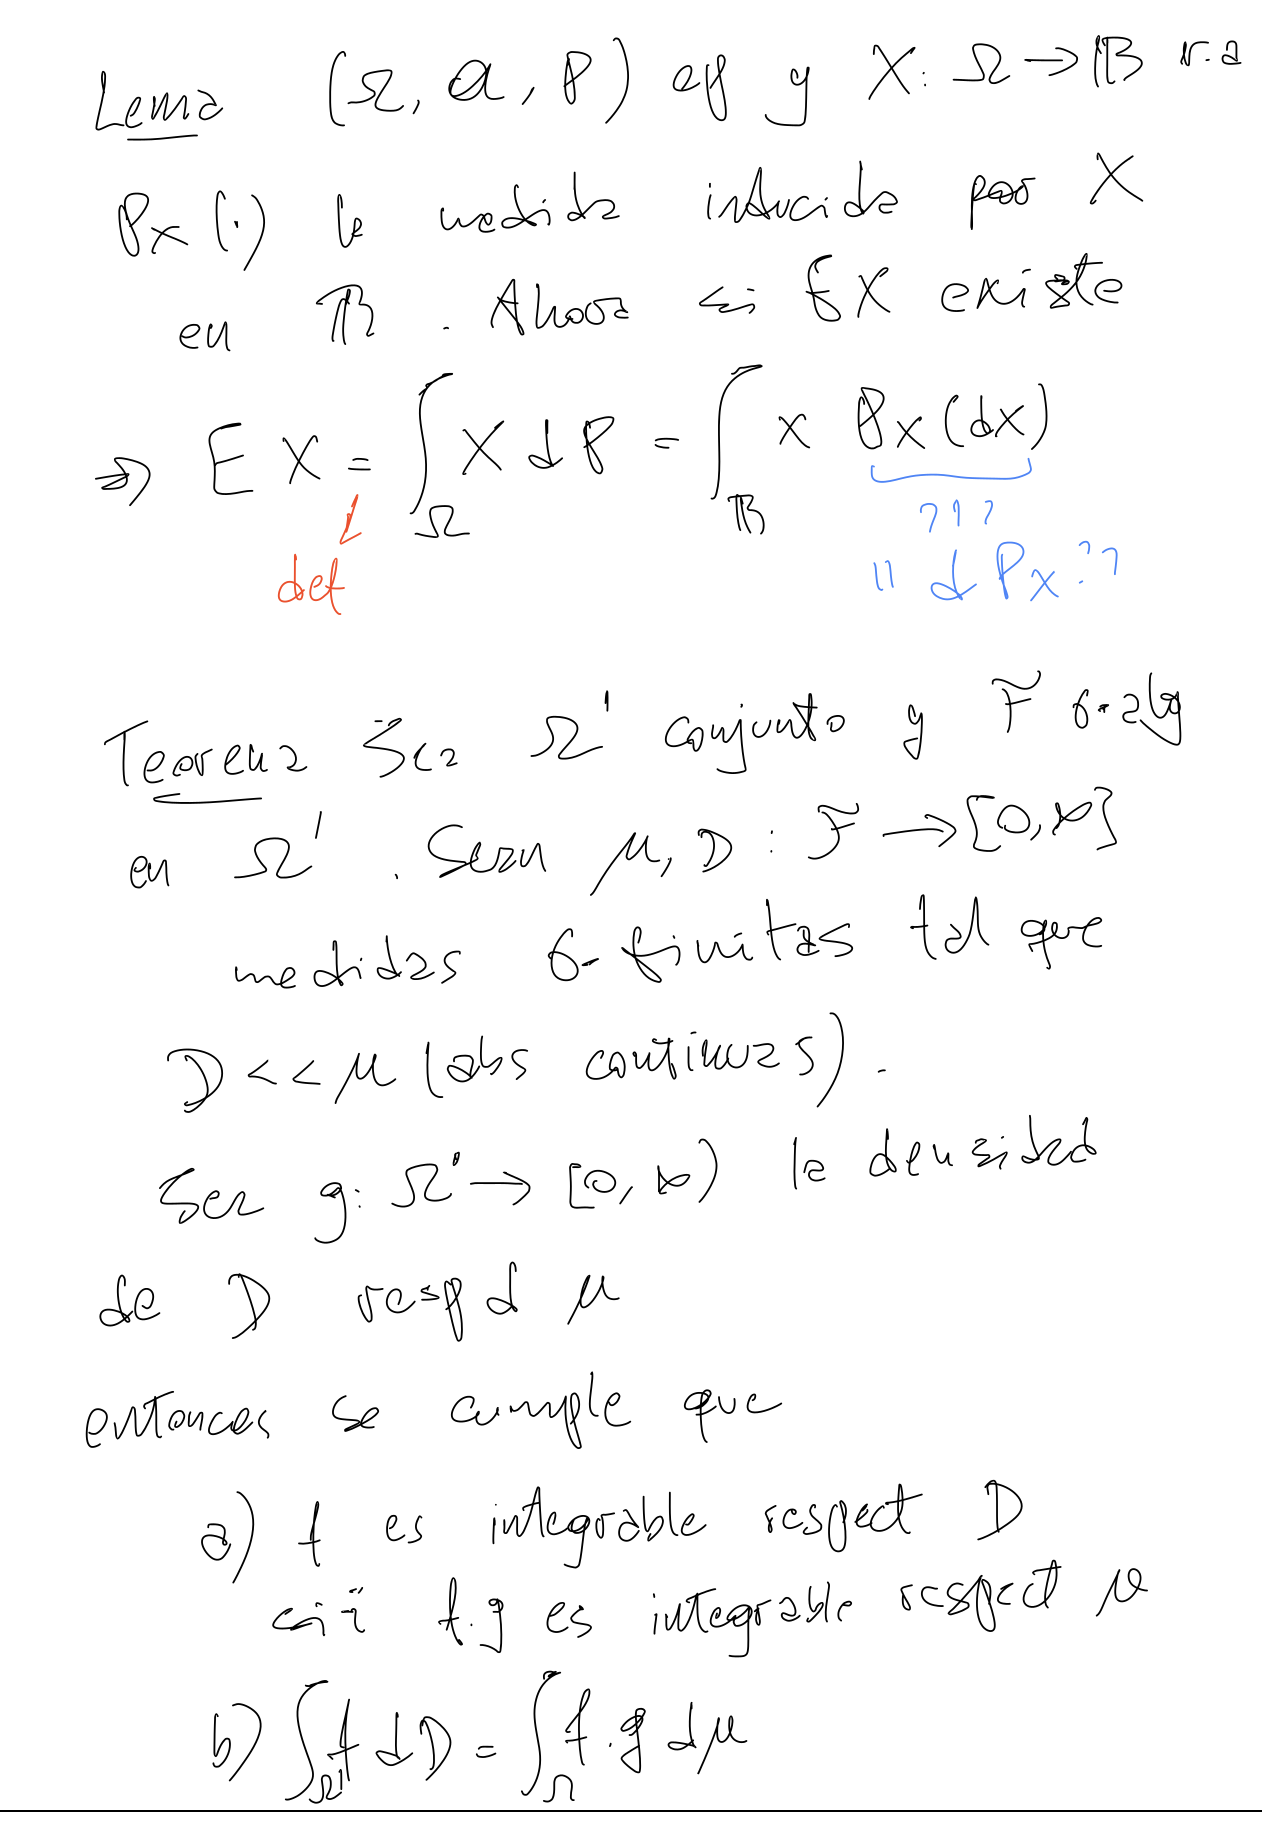 Lema (Ω, a, P) ep y X: Ω → ℝ v.a
Px(·) la medida inducida por X
en ℝ. Ahora si EX existe
⇒ EX = ∫_Ω X dP = ∫_ℝ x Px(dx)
def
???
" d Px ??
Teorema Sea Ω' conjunto y F σ-alg
en Ω'. Sean μ, ν : F → [0,∞]
medidas σ-finitas tal que
ν << μ (abs continuas).
Sea g: Ω' → [0,∞) la densidad
de ν resp d μ
entonces se cumple que
a) f es integrable respect ν
sii f.g es integrable respect μ
b) ∫_Ω' f dν = ∫_Ω f.g dμ